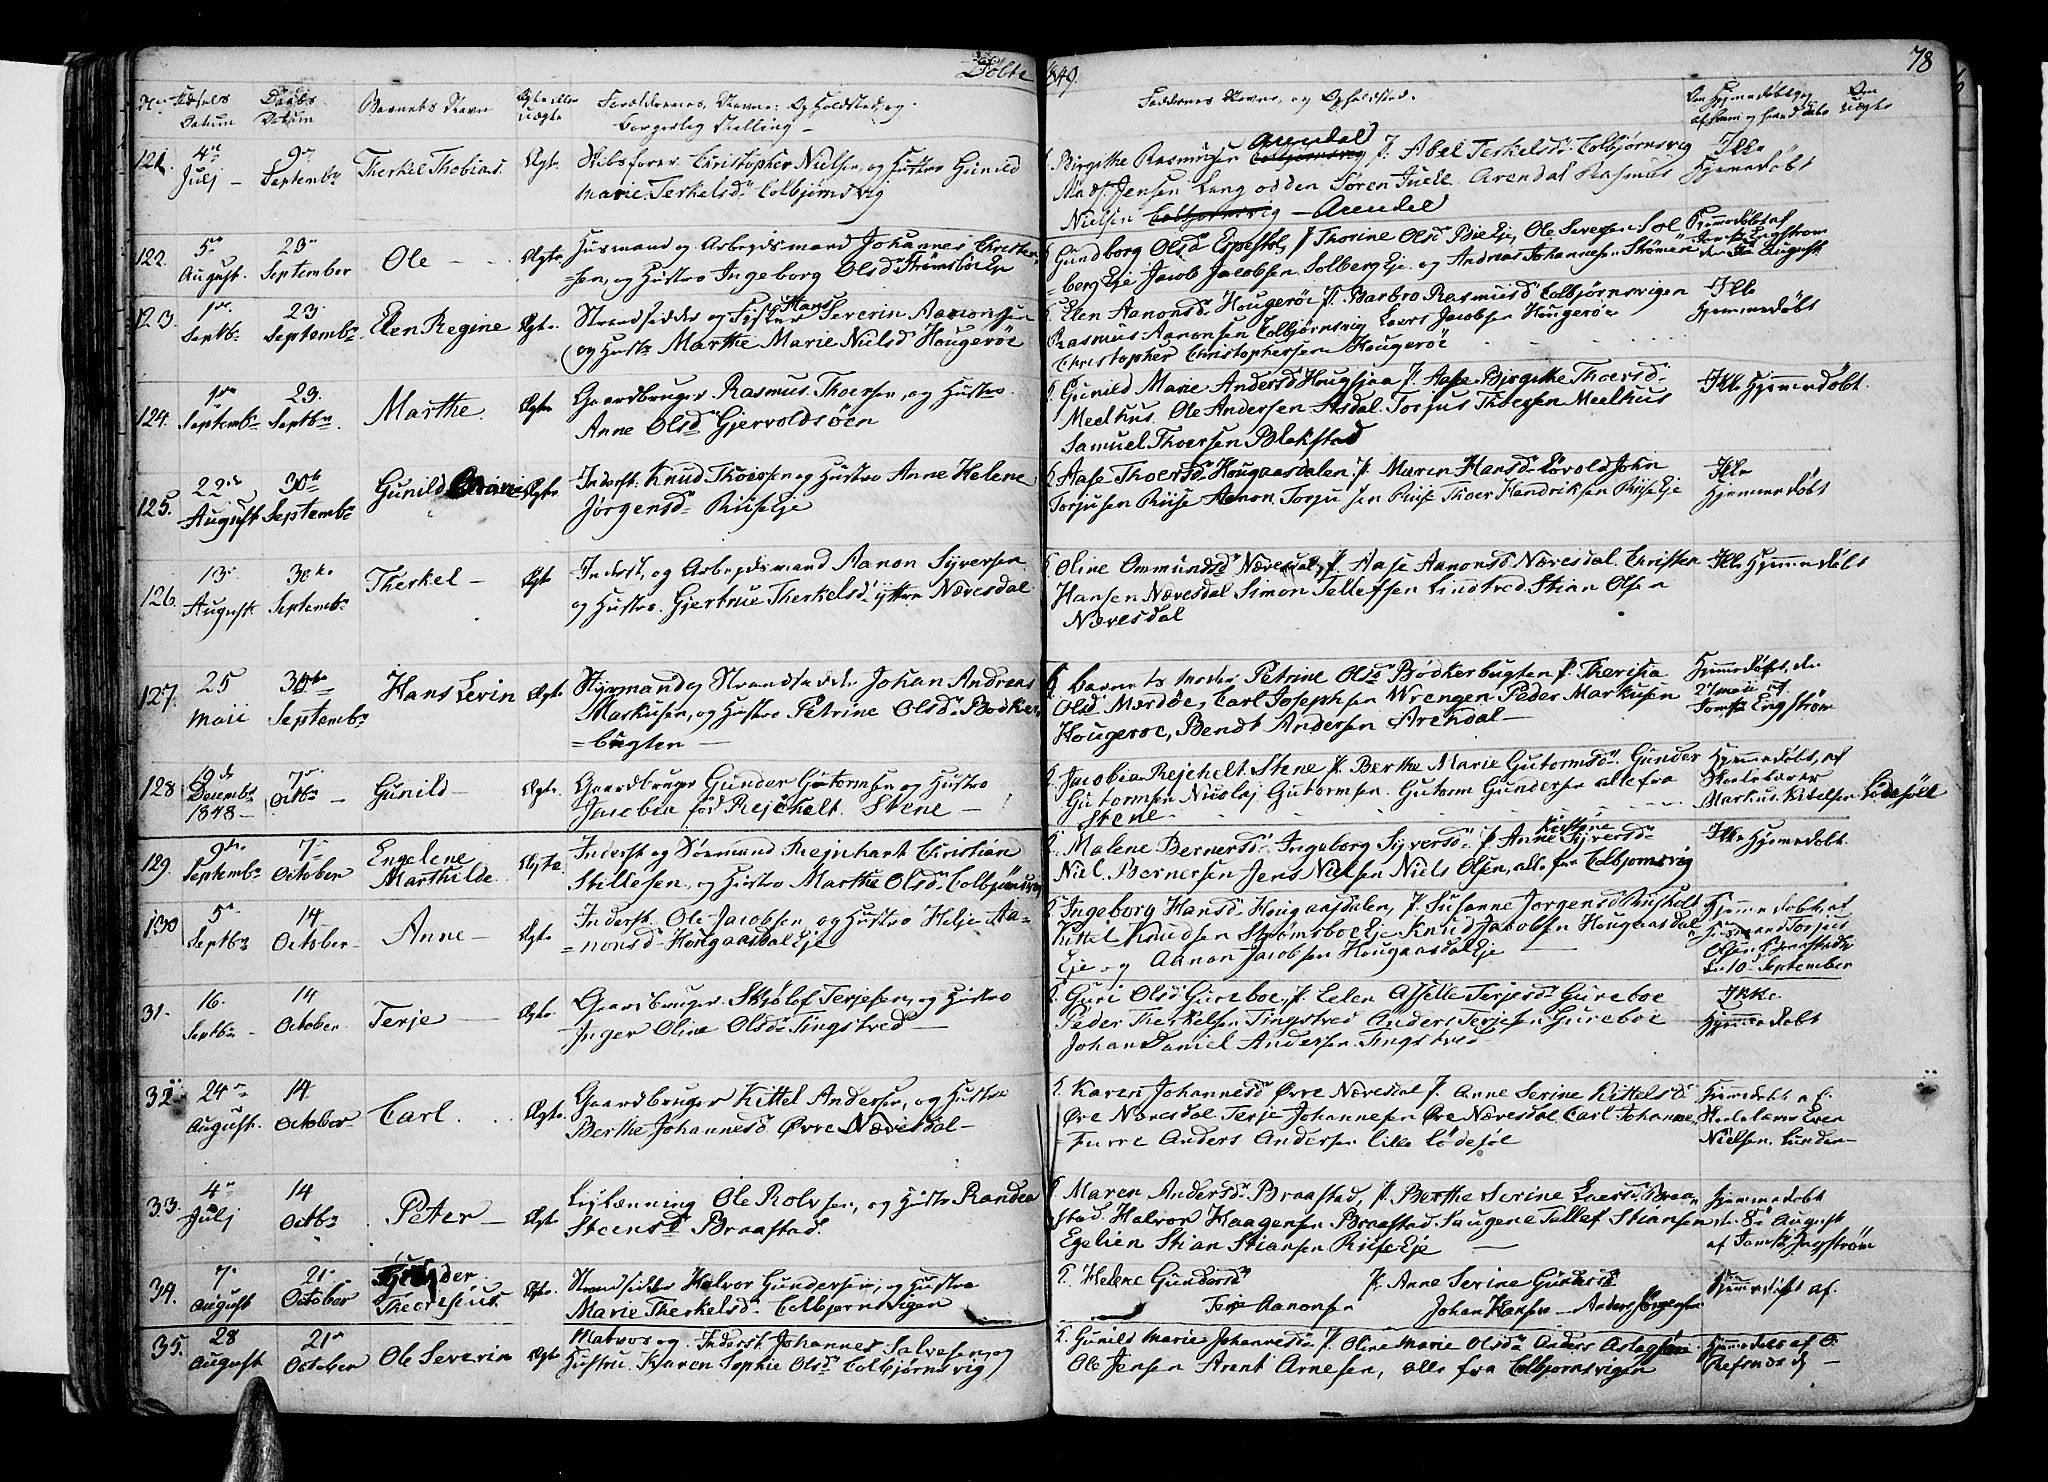 Døbte 1849. 78
No Fødsels Datum Daabs Datum Barnets Navn Ægte eller Uægte Forældrenes Navne, Opholdsted, og borgerlig Stilling
Faddernes Navne, og Opholdsted.
Om Hjemmedøbt, og af hvem og hvad Dato
Om Uægte
121. 4de Julj 9de Septembr Therkel Thobias. Ægte. Skibsfører Christopher Nielsen, og Hustro Gunild
Marie Terkelsd. Colbjørnsvig
Birgithe Rasmusen Colbjørnsvig Arendal P. Abel Terkelsd. Colbjørnsvig
Mads Jensen Langodden Søren Juell Arendal Rasmus
Nielsen Colbjørnsvig – Arendal
Ikke Hjemmedøbt
122. 5te August. 23de September Ole Ægte Husmand og Arbejdsmand Johannes Christen-
=sen, og Hustro Ingeborg Olsd. Strømsbøe Eje
Gundborg Olsd. Espestøl, P. Thorine Olsd. Bie Eje, Ole Seversen Sol
=berg Eje Jacob Jacobsen Solberg Eje og Andreas Johannesen Strømen
Hjemmedøbt af Jomfr Engstrøm den August
123. 1ste Septb. 23 Septembr. Elen Regine Ægte. Strandsidder og Fisker Hans Severin Aanonsen
og Hustr Marthe Marie Nielsd. Hougerøe
Elen Aanonsd. Hougerøe P. Barbro Rasmusd. Colbjørnsvigen
Rasmus Aanonsen Colbjørnsvig Laers Jacobsen Hougerøe
Christopher Christophersen Hougerøe
Ikke Hjemmedøbt
124. 1ste Septembr 23. Septbr. Marthe. Ægte Gaardbruger Rasmus Thorsen, og Hustro
Anne Olsd. Gjervoldsøen
Gunild Marie Andersd. Hougsjaa P. Aase Birgithe Thoersd.
Meelhus. Ole Andersen Asdal. Torjus Thorsen Meelhus
Samuel Thorsen Blakstad
Ikke Hjemmedøbt.
125. 22de August 30te Septembr Gunild Marie Ægte Inderst. Knud Thorsen og Hustro Anne Helene
Jørgensd. Riiseje
Aase Thoersd. Hougaasdalen, P. Maren Hansd. Løvold John
Torjusen Riise Aanon Torjusen Riise Thoer Hendriksen Riise Eje
Ikke Hjemmedøbt
126. 13de August 30te Septembr Therkel – Ægte Inderst, og Arbejdsmand Aanon Syversen
og Hustro. Gjertrue Therkelsd. yttre Næresdal
Oline Ommundsd. Næresdal, P. Aase Aanonsd. Næresdal. Christen
Hansen Næresdal Simon Tellefsen Lindtved Stian Olsen
Næresdal
Ikke Hjemmedøbt
127. 25 Maii 30te Septembr Hans Levin Ægte. Styrmand og Strandsidder Johan Andreas
Markusen, og Hustro Petrine Olsd. Bødker-
=bugten –
Barnets Moder Petrine Olsd. Bødkerbugten P. Therisia
Olsd. Mærdøe, Carl Josephsen Wrengen Peder Markusen
Hougerøe, Bendt Andersen Arendal –
Hjemmedøbt, den 27 Maii af Jomfr Engstrøm
128 19de Decembr 1848 – 7de Octbr – Gunild – Ægte. Gaardbruger Gunder Gutormsen og Hustro
Jacobia fød Rejchelt. Stene –
Jacobia Rejchelt Stene P. Berthe Marie Gutormsd. Gunder
Gutormsen Nicolaj Gutormsen. Gutorm Gundersen alle fra
Stene
Hjemmedøbt, af Skolelærer Markus Kitelsen Lødesøll
129. 9de Septembr 7de October Engelene Marthilde. Ægte. Inderst og Sømand Rejnhart Christian
Stillesen, og Hustro Marthe Olsd. Colbjørnsvig
Malene Bernersd. Ingeborg Syversd. P. Anne Kirstine Syversd.
Niel. Bernersen Jens Nielsen Niels Olsen, alle fra Colbjørnsvig
Ikke Hjemmedøbt.
130 5te Septbr 14 October – Anne – Ægte. Inderst. Ole Jacobsen, og Hustro Helje Aa-
=nonsd. Hougaasdal Eje
Ingeborg Hansd. Hougaasdalen, P. Susanne Jorgensd. Rusholt
Kittel Knudsen Strømsboe Eje Knud Jacobsen Hougaasdal
Eje og Aanon Jacobsen Hougaasdal Eje
Hjemmedøbt, af Husmand Torjus Olsen den 10. September
31. 16. Septbr – 14 October Terje – Ægte. Gaardbruger. Skjølof Terjesen, og Hustro
Inger Oline Olsd. Tingstved –
Guri Olsd. Gureboe, P. Elen Assille Terjesd. Gureboe
Peder Therkelsen Tingstved Anders Terjesen Gureboe
Johan Daniel Andersen Tingstved
Ikke. Hjemmedøbt
32 24de August. 14 October Carl. Ægte. Gaardbruger Kittel Andersen, og Hustro
Berthe Johannesd. Øvre Næresdal –
Karen Johannesd. Øvre Næresdal P. Anne Serine Kittelsd.
Øvre Næresdal. Terje Johannesen Øvre Næresdal Carl Johannes
Furre Anders Andersen Lille Lødesøl
Hjemmedøbt af. Skolelærer Even Nielsen. Lunden –
33. 4de Julj 14 Octbr Peter – Ægte Lejlænning Ole Rolvsen, og Hustro Randea
Steensd. Braastad.
Maren Andersd. Braastad, P. Berthe Serine Laersd. Braa
stad. Halvor Haagensen Braastad. Saugene Tellef Stiansen
Egelien Stian Stiansen Riise Eje –
Hjemmedøbt de. 8de August af Jomfr Engstrøm
34. 7de August 21de October Gunder Theoresius. Ægte. Strandsidder Halvor Gundersen, og Hustro
Marie Therkelsd. Colbjørnsvigen
Helene Gundersd. P. Anne Serine Gundersd.
Terje Aanonsen Johan Hansen – Anders Jörgensen
Hjemmedøbt af.
35. 28 August 21de October Ole Severin Ægte Matros og Inderst Johannes Salvesen, og
Hustru Karen Sophie Olsd. Colbjørnsvig
Gunild Marie Johannesd. P. Oline Marie Olsd. Anders Aslagsen
Ole Jensen Arent Arnesen, alle fra Colbjørnsvigen
Hjemmedøbt af O.